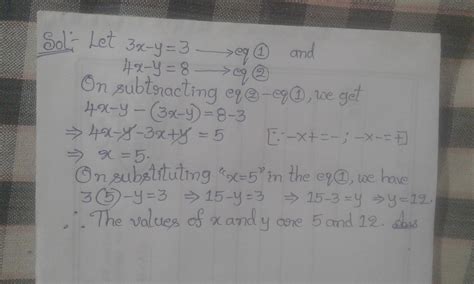 Sol:- Let 3x-y=3 ⟶ eq ① and
4x-y=8 ⟶ eq ②
On subtracting eq ②-eq ①, we get
4x-y-(3x-y)=8-3
⇒ 4x-y-3x+y=5 [∵ -x+=-; -x-=+]
⇒ x=5.
On substituting "x=5" in the eq ①, we have
3(5)-y=3 ⇒ 15-y=3 ⇒ 15-3=y ⇒ y=12.
∴ The values of x and y are 5 and 12.